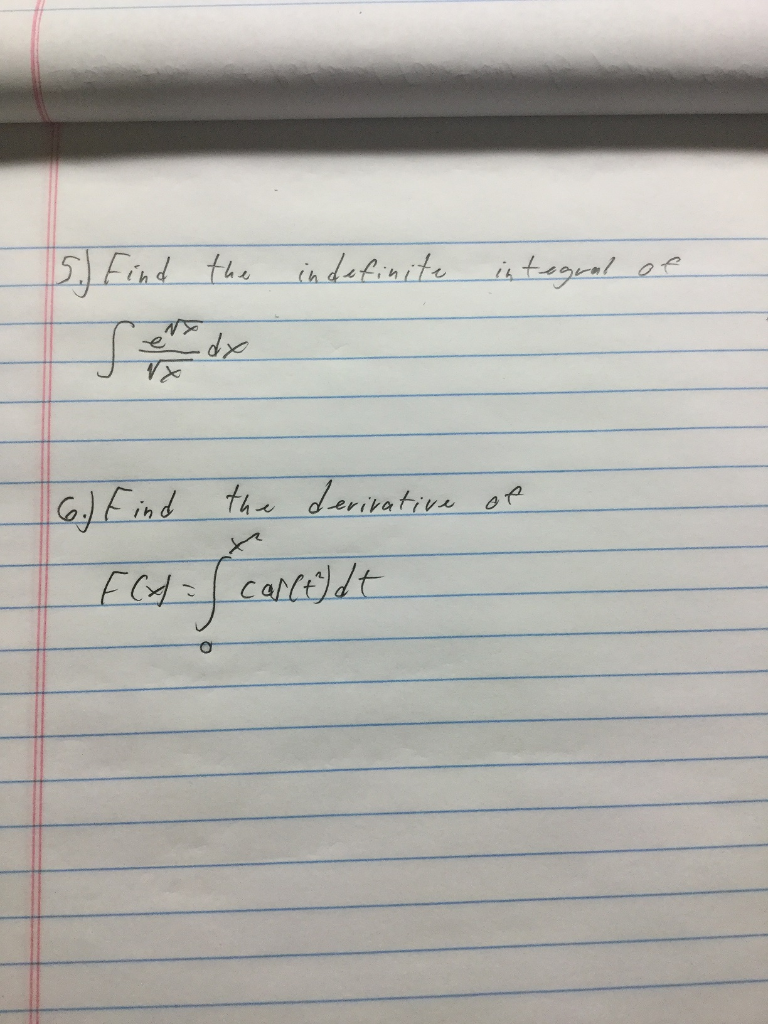 5.) Find the indefinite integral of
∫ e^√x / √x dx
6.) Find the derivative of
F(x) = ∫₀^x² cos(t²) dt